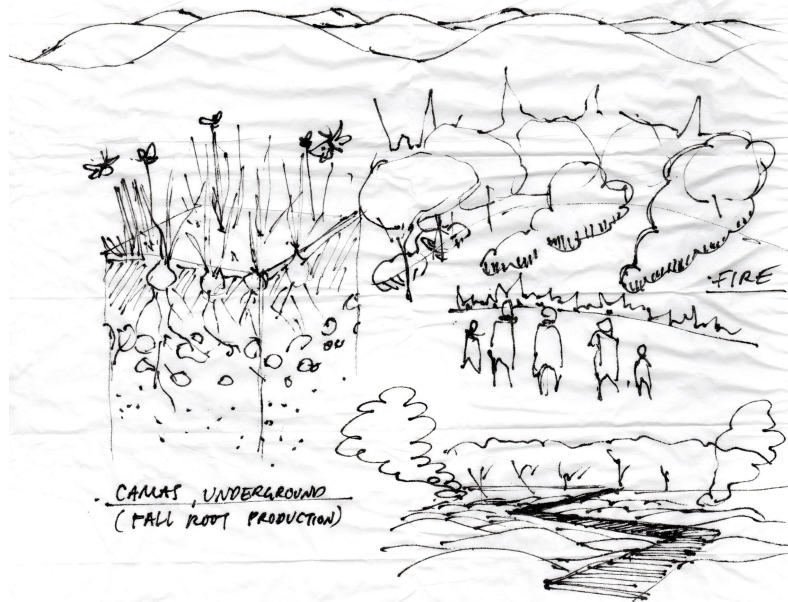 FIRE
CAMAS UNDERGROUND
(FALL ROOT PRODUCTION)